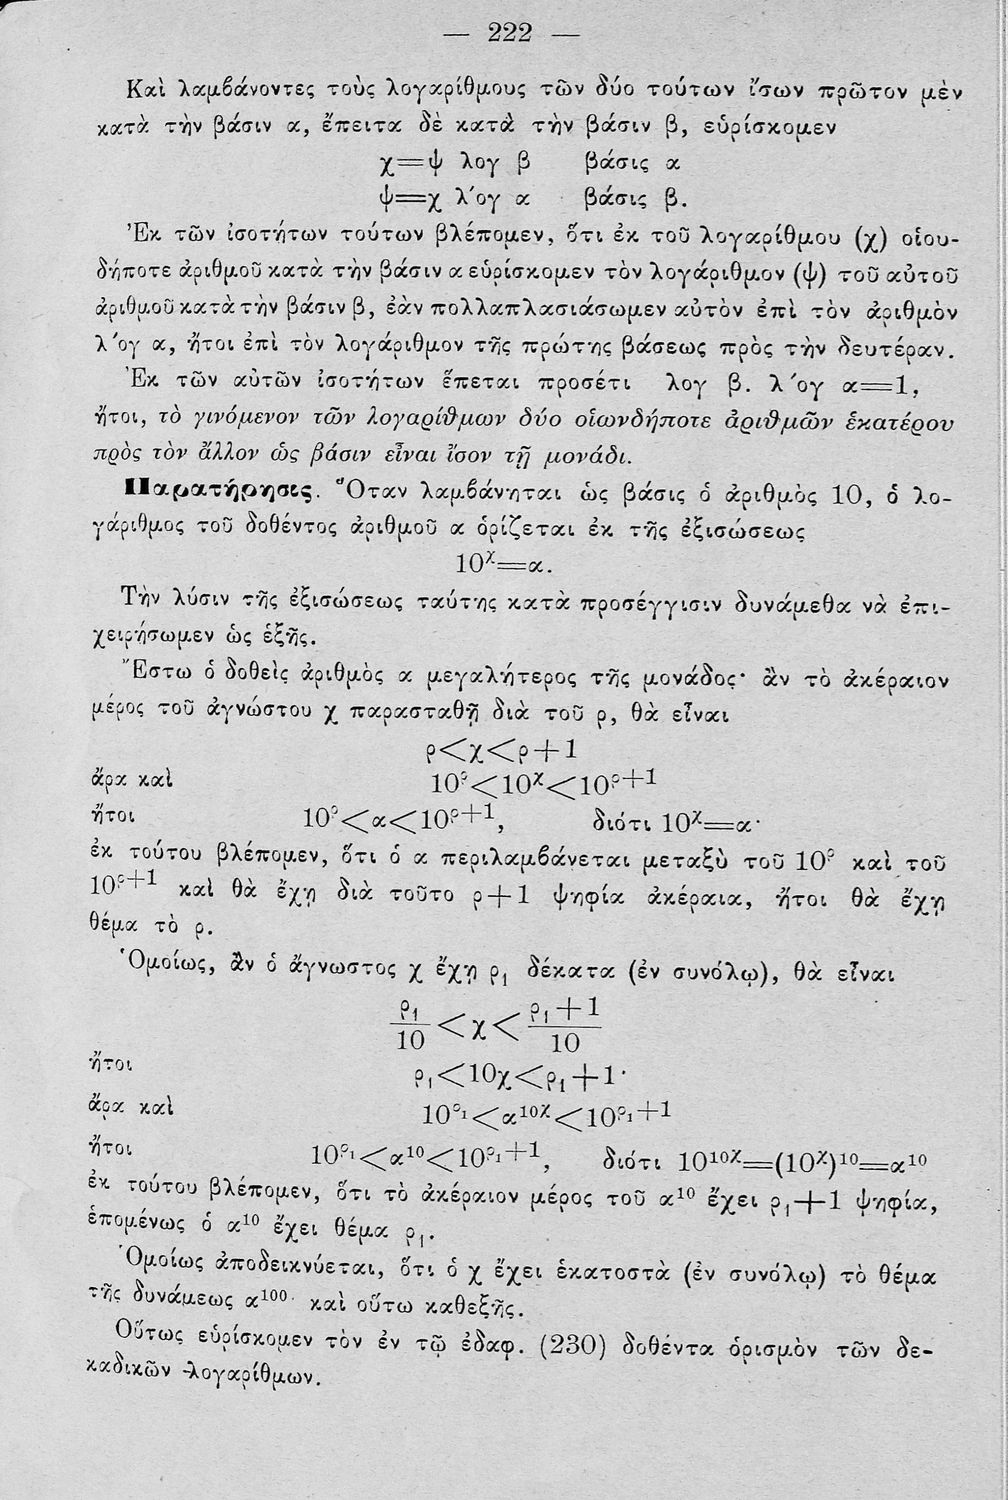 — 222 —
Καὶ λαμβάνοντες τοὺς λογαρίθμους τῶν δύο τούτων ἴσων πρῶτον μὲν
κατὰ τὴν βάσιν α, ἔπειτα δὲ κατὰ τὴν βάσιν β, εὑρίσκομεν
χ=ψ λογ β βάσις α
ψ=χ λ´ογ α βάσις β.
Ἐκ τῶν ἰσοτήτων τούτων βλέπομεν, ὅτι ἐκ τοῦ λογαρίθμου (χ) οἱου-
δήποτε ἀριθμοῦ κατὰ τὴν βάσιν α εὑρίσκομεν τὸν λογάριθμον (ψ) τοῦ αὐτοῦ
ἀριθμοῦ κατὰ τὴν βάσιν β, ἐὰν πολλαπλασιάσωμεν αὐτὸν ἐπὶ τὸν ἀριθμὸν
λ´ογ α, ἤτοι ἐπὶ τὸν λογάριθμον τῆς πρώτης βάσεως πρὸς τὴν δευτέραν.
Ἐκ τῶν αὐτῶν ἰσοτήτων ἕπεται προσέτι λογ β. λ´ογ α=1,
ἤτοι, τὸ γινόμενον τῶν λογαρίθμων δύο οἱωνδήποτε ἀριθμῶν ἑκατέρου
πρὸς τὸν ἄλλον ὡς βάσιν εἶναι ἴσον τῇ μονάδι.
Παρατήρησις. Ὅταν λαμβάνηται ὡς βάσις ὁ ἀριθμὸς 10, ὁ λο-
γάριθμος τοῦ δοθέντος ἀριθμοῦ α ὁρίζεται ἐκ τῆς ἐξισώσεως
10^χ=α.
Τὴν λύσιν τῆς ἐξισώσεως ταύτης κατὰ προσέγγισιν δυνάμεθα νὰ ἐπι-
χειρήσωμεν ὡς ἑξῆς.
Ἔστω ὁ δοθεὶς ἀριθμὸς α μεγαλήτερος τῆς μονάδος· ἂν τὸ ἀκέραιον
μέρος τοῦ ἀγνώστου χ παρασταθῇ διὰ τοῦ ρ, θὰ εἶναι
ρ<χ<ρ+1
ἄρα καὶ 10^ρ<10^χ<10^ρ+1
ἤτοι 10^ρ<α<10^ρ+1, διότι 10^χ=α·
ἐκ τούτου βλέπομεν, ὅτι ὁ α περιλαμβάνεται μεταξὺ τοῦ 10^ρ καὶ τοῦ
10^ρ+1 καὶ θὰ ἔχῃ διὰ τοῦτο ρ+1 ψηφία ἀκέραια, ἤτοι θὰ ἔχῃ
θέμα τὸ ρ.
Ὁμοίως, ἂν ὁ ἄγνωστος χ ἔχῃ ρ₁ δέκατα (ἐν συνόλῳ), θὰ εἶναι
ρ₁/10 < χ < ρ₁+1/10
ἤτοι ρ₁<10χ<ρ₁+1·
ἄρα καὶ 10^ρ₁<α^10χ<10^ρ₁+1
ἤτοι 10^ρ₁<α¹⁰<10^ρ₁+1, διότι 10^10χ=(10^χ)¹⁰=α¹⁰
ἐκ τούτου βλέπομεν, ὅτι τὸ ἀκέραιον μέρος τοῦ α¹⁰ ἔχει ρ₁+1 ψηφία,
ἑπομένως ὁ α¹⁰ ἔχει θέμα ρ₁.
Ὁμοίως ἀποδεικνύεται, ὅτι ὁ χ ἔχει ἑκατοστὰ (ἐν συνόλῳ) τὸ θέμα
τῆς δυνάμεως α¹⁰⁰· καὶ οὕτω καθεξῆς.
Οὕτως εὑρίσκομεν τὸν ἐν τῷ ἐδαφ. (230) δοθέντα ὁρισμὸν τῶν δε-
καδικῶν λογαρίθμων.